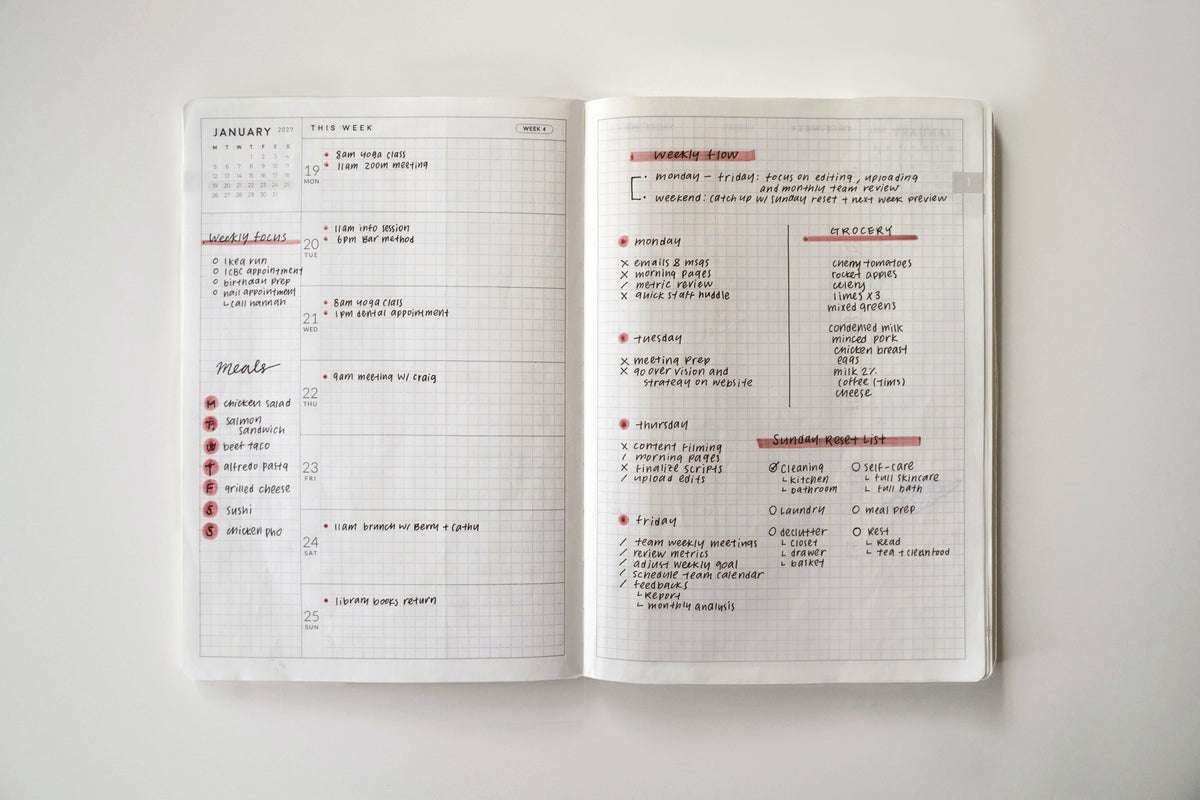 JANUARY 2027
M T W T F S S
1 2 3 4
5 6 7 8 9 10 11
12 13 14 15 16 17 18
19 20 21 22 23 24 25
26 27 28 29 30 31
weekly focus
Ikea run
ICBC appointment
birthday prep
nail appointment
call hannah
meals
M chicken salad
T salmon
sandwich
W beef taco
T alfredo pasta
F grilled cheese
S sushi
S chicken pho
THIS WEEK
WEEK 4
19
MON
8am yoga class
11am zoom meeting
20
TUE
11am info session
6pm Bar method
21
WED
8am yoga class
1pm dental appointment
22
THU
9am meeting w/ craig
23
FRI
24
SAT
11am brunch w/ Berry + Cathy
25
SUN
library books return
weekly flow
monday – friday: focus on editing, uploading
and monthly team review
weekend: catch up w/ sunday reset + next week preview
1
monday
x emails & msgs
x morning pages
/ metric review
x quick staff huddle
tuesday
x meeting prep
x go over vision and
strategy on website
thursday
x content filming
/ morning pages
x finalize scripts
/ upload edits
friday
/ team weekly meetings
/ review metrics
/ adjust weekly goal
/ schedule team calendar
/ feedbacks
Report
monthly analysis
GROCERY
cherry tomatoes
rocket apples
celery
limes x3
mixed greens
condensed milk
minced pork
chicken breast
eggs
milk 2%
coffee (tims)
cheese
Sunday Reset List
cleaning
kitchen
bathroom
Laundry
declutter
closet
drawer
basket
self-care
full skincare
full bath
meal prep
Rest
Read
tea + clean food